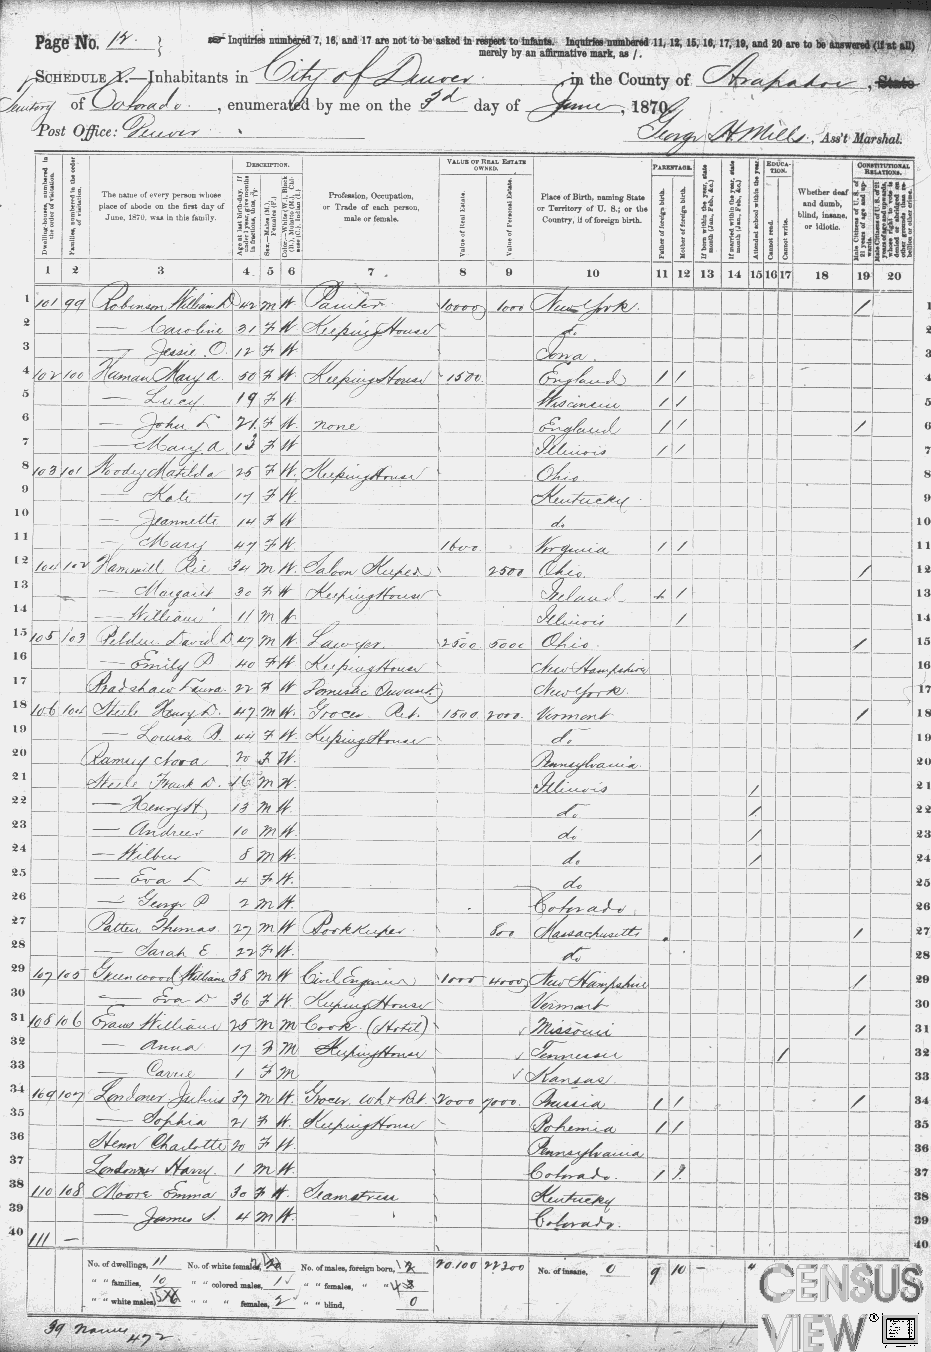 Page No. 12
☞ Inquiries numbered 7, 16, and 17 are not to be asked in respect to infants. Inquiries numbered 11, 12, 15, 16, 17, 19, and 20 are to be answered (if at all) merely by an affirmative mark, as /.
SCHEDULE 1.—Inhabitants in City of Denver, in the County of Arapahoe, State
Territory of Colorado, enumerated by me on the 3d day of June, 1870.
Post Office: Denver
George H. Mills, Ass't Marshal.
Dwelling-houses, numbered in the order of visitation.
Families, numbered in the order of visitation.
The name of every person whose place of abode on the first day of June, 1870, was in this family.
DESCRIPTION.
Age at last birth-day. If under 1 year, give months in fractions, thus, 3/12.
Sex.—Males (M.), Females (F.)
Color.—White (W.), Black (B.), Mulatto (M.), Chinese (C.), Indian (I.)
Profession, Occupation, or Trade of each person, male or female.
VALUE OF REAL ESTATE OWNED.
Value of Real Estate.
Value of Personal Estate.
Place of Birth, naming State or Territory of U. S.; or the Country, if of foreign birth.
PARENTAGE.
Father of foreign birth.
Mother of foreign birth.
If born within the year, state month (Jan., Feb., &c.)
If married within the year, state month (Jan., Feb., &c.)
Attended school within the year.
EDUCATION.
Cannot read.
Cannot write.
Whether deaf and dumb, blind, insane, or idiotic.
CONSTITUTIONAL RELATIONS.
Male Citizens of U. S. of 21 years of age and upwards.
Male Citizens of U. S. of 21 years of age and upwards, whose right to vote is denied or abridged on other grounds than rebellion or other crime.
1 2 3 4 5 6 7 8 9 10 11 12 13 14 15 16 17 18 19 20
1 101 99 Robinson William D 42 M W Painter 10000 1000 New York / 1
2 — Caroline 31 F W Keeping House do 2
3 — Jessie O. 12 F W Iowa 3
4 102 100 Mary A 50 F W Keeping House 1500 England / / 4
5 — Lucy 19 F W Wisconsin / / 5
6 — John L 21 F W none England / / / 6
7 — Mary A 13 F W Illinois / / 7
8 103 101 Moody Matilda 25 F W Keeping House Ohio 8
9 — Kate 17 F W Kentucky 9
10 — Jeannette 14 F W do 10
11 — Mary 47 F W 1600 Virginia / / 11
12 104 102 Hammill 34 M W Saloon Keeper 2500 Ohio / 12
13 — Margaret 30 F W Keeping House Ireland / / 13
14 — William 11 M W Illinois / 14
15 105 103 Belden David D 47 M W Lawyer 2500 5000 Ohio / 15
16 — Emily P 40 F W Keeping House New Hampshire 16
17 Bradshaw Laura 22 F W Domestic Servant New York 17
18 106 104 Steele Henry L. 47 M W Grocer Ret. 1500 2000 Vermont / 18
19 — Louisa B. 44 F W Keeping House do 19
20 Ramsey Nora 20 F W Pennsylvania 20
21 Steele Frank L. 16 M W Illinois / 21
22 — Henry H, 13 M W do / 22
23 — Andrew 10 M W do / 23
24 — Wilbur 8 M W do / 24
25 — Eva L 4 F W do 25
26 — George P 2 M W Colorado 26
27 Patten Thomas 27 M W Book Keeper 800 Massachusetts / 27
28 — Sarah E 22 F W do 28
29 107 105 Greenwood William 38 M W Civil Engineer 1000 4000 New Hampshire / 29
30 — Eva D 36 F W Keeping House Vermont 30
31 108 106 Evans William 25 M M Cook (Hotel) Missouri / 31
32 — Anna 17 F M Keeping House Tennessee / 32
33 — Carrie 1 F M Kansas 33
34 109 107 Londoner Julius 37 M W Grocer Wh & Ret. 2000 7000 Prussia / / / 34
35 — Sophia 21 F W Keeping House Bohemia / / 35
36 Henn Charlotte 20 F W Pennsylvania 36
37 Londoner Harry 1 M W Colorado / / 37
38 110 108 Moore Emma 30 F W Seamstress Kentucky 38
39 — James S. 4 M W Colorado 39
40 111 — 40
No. of dwellings, 11 No. of white females, No. of males, foreign born, 2 20.100 22200 No. of insane, 0 9 10 —
" " families, 10 " " colored males, 1 " " females, " " 3
" " white males, 16 " " " females, 2 " " blind, 0
39 names
472
CENSUS
VIEW